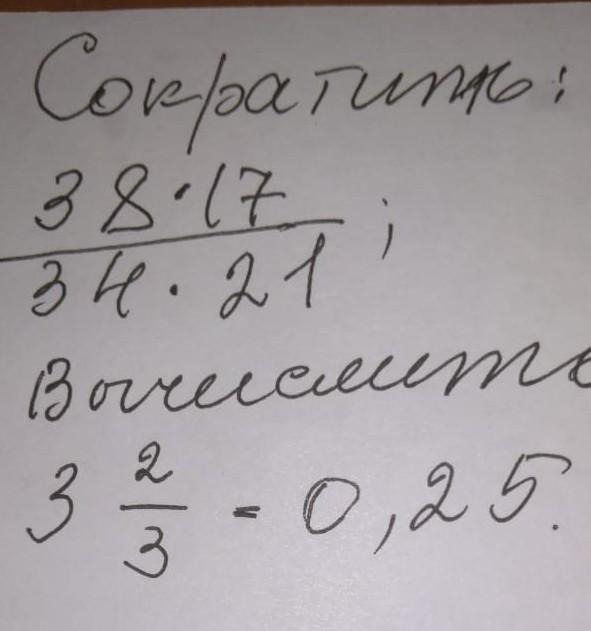 Сократить:
38·17
34·21 ;
Вычислить
3 2/3 - 0,25.